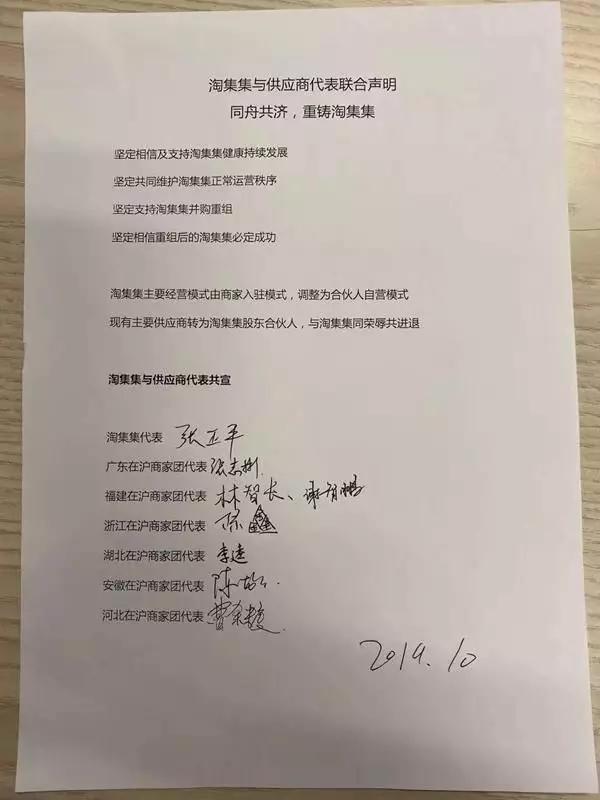 淘集集与供应商代表联合声明
同舟共济，重铸淘集集
坚定相信及支持淘集集健康持续发展
坚定共同维护淘集集正常运营秩序
坚定支持淘集集并购重组
坚定相信重组后的淘集集必定成功
淘集集主要经营模式由商家入驻模式，调整为合伙人自营模式
现有主要供应商转为淘集集股东合伙人，与淘集集同荣辱共进退
淘集集与供应商代表共宣
淘集集代表 张正平
广东在沪商家团代表
福建在沪商家团代表 林智长、
浙江在沪商家团代表 陈鑫
湖北在沪商家团代表 李逵
安徽在沪商家团代表 陈
河北在沪商家团代表 曹
2019.10